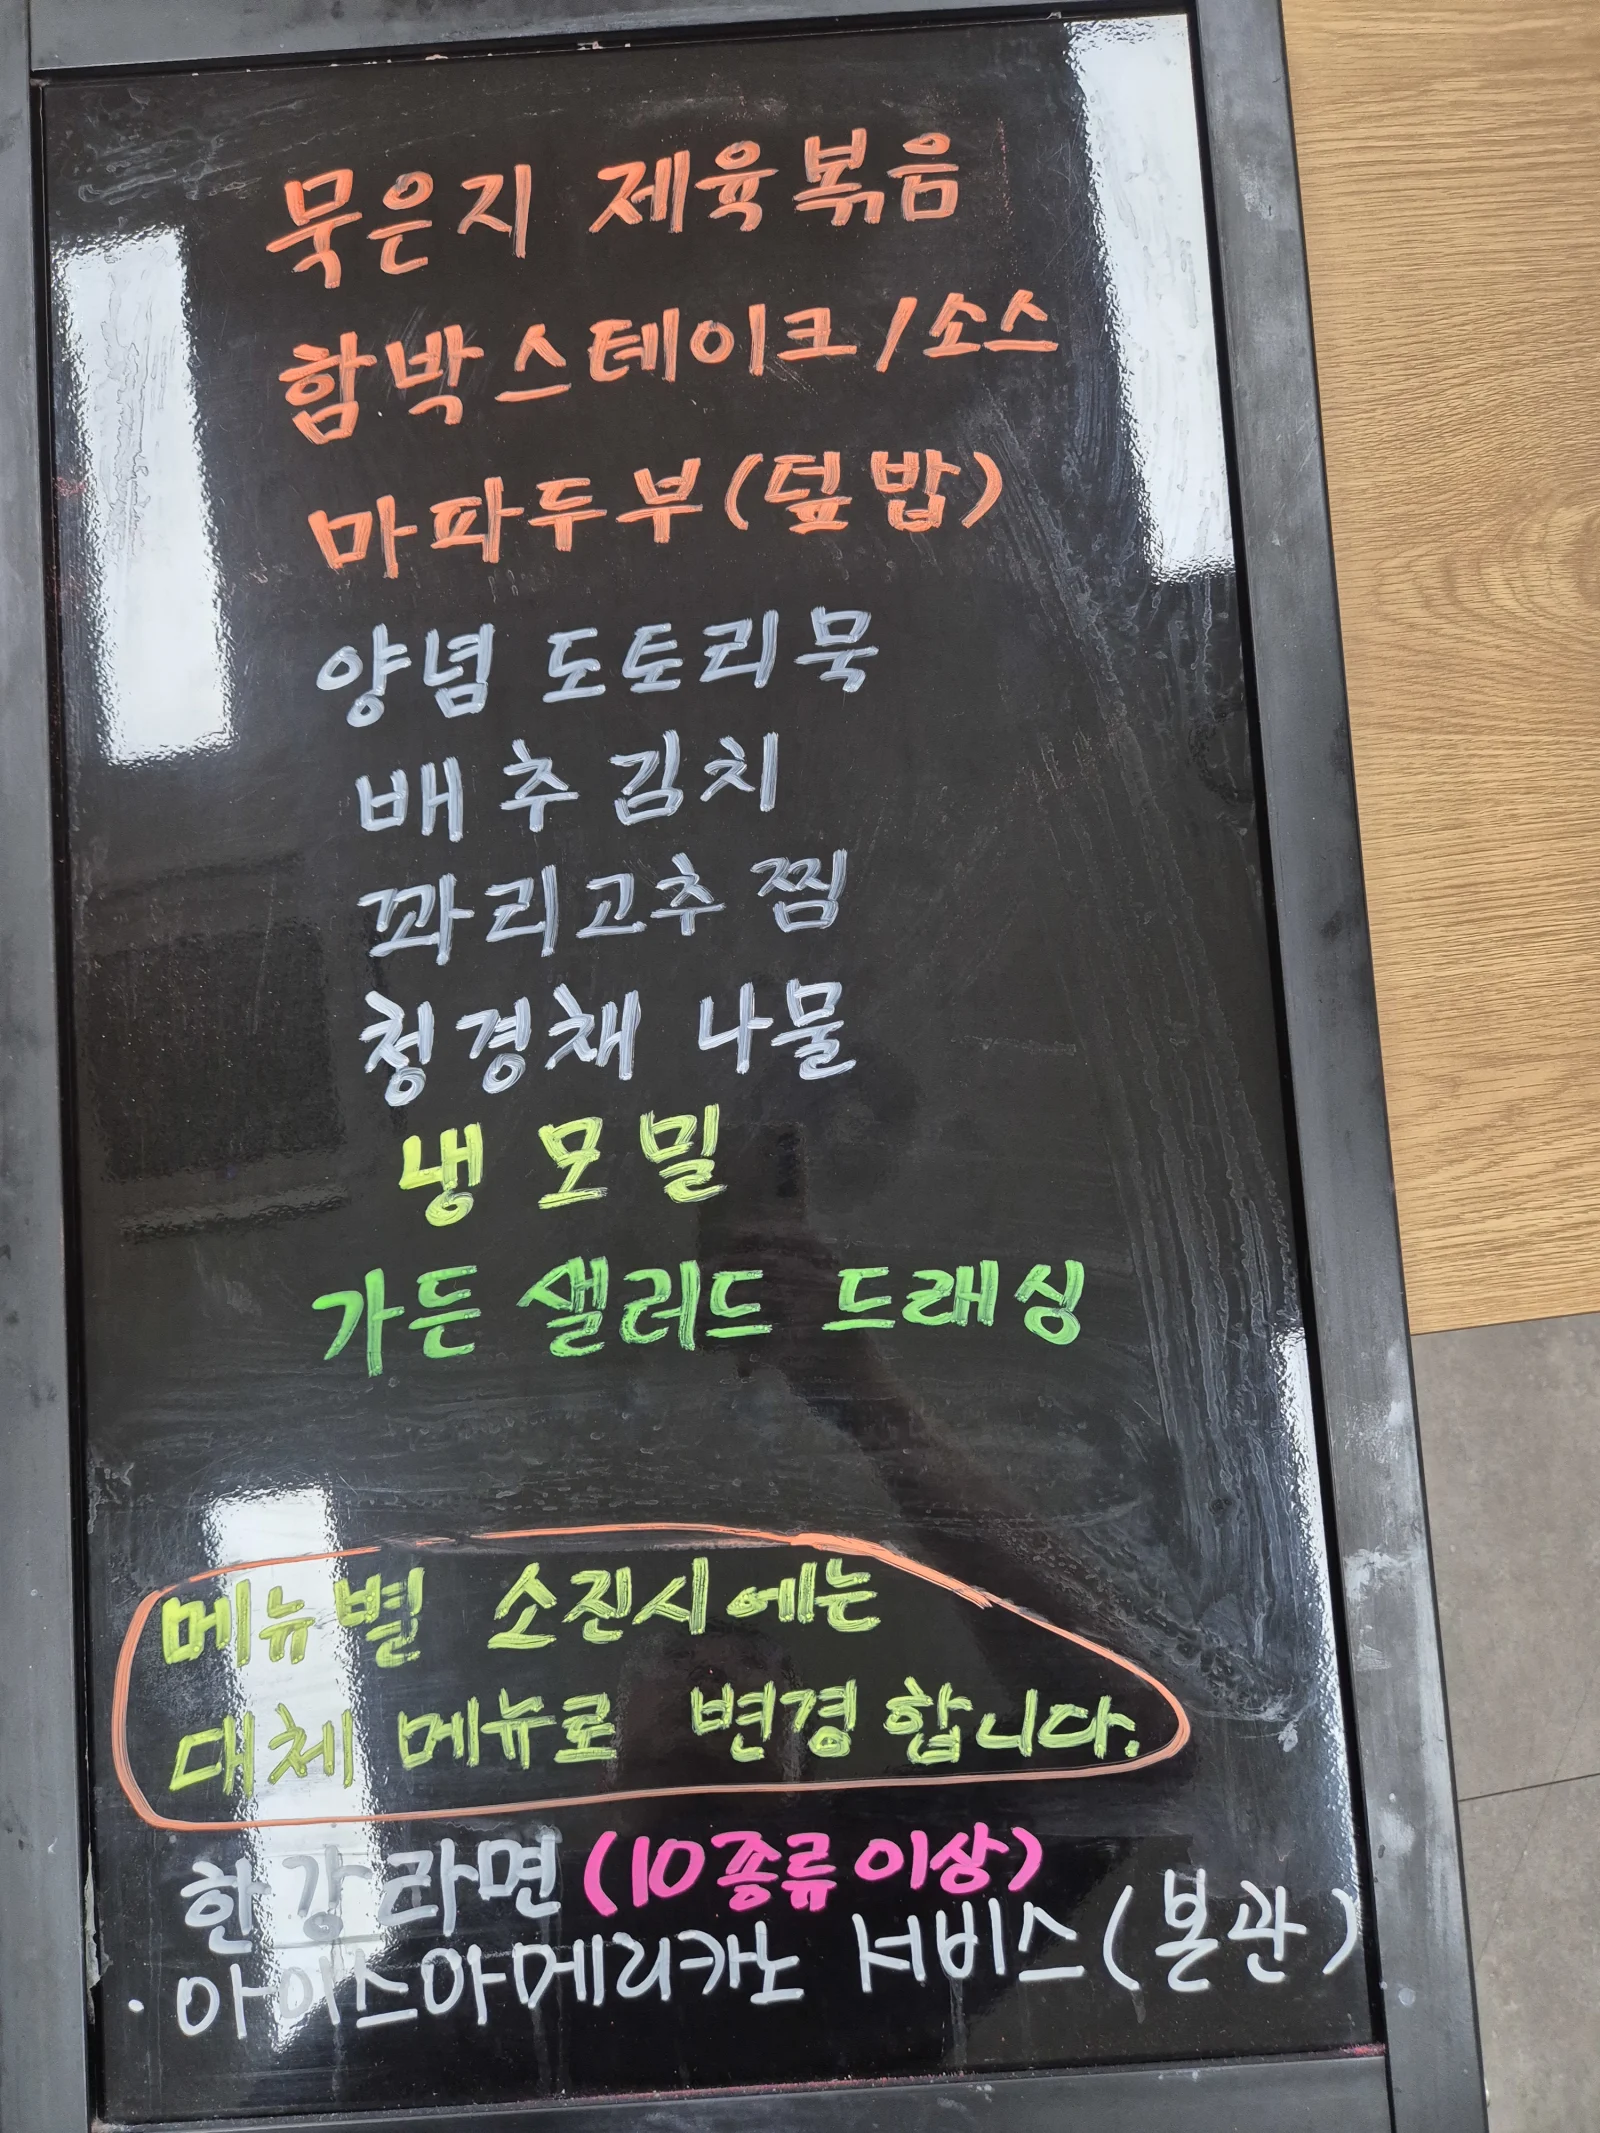 묵은지 제육볶음
함박스테이크/소스
마파두부(덮밥)
양념 도토리묵
배추김치
꽈리고추 찜
청경채 나물
냉모밀
가든 샐러드 드래싱
메뉴별 소진시에는
대체 메뉴로 변경합니다.
한강라면(10종류이상)
· 아이스아메리카노 서비스(본관)